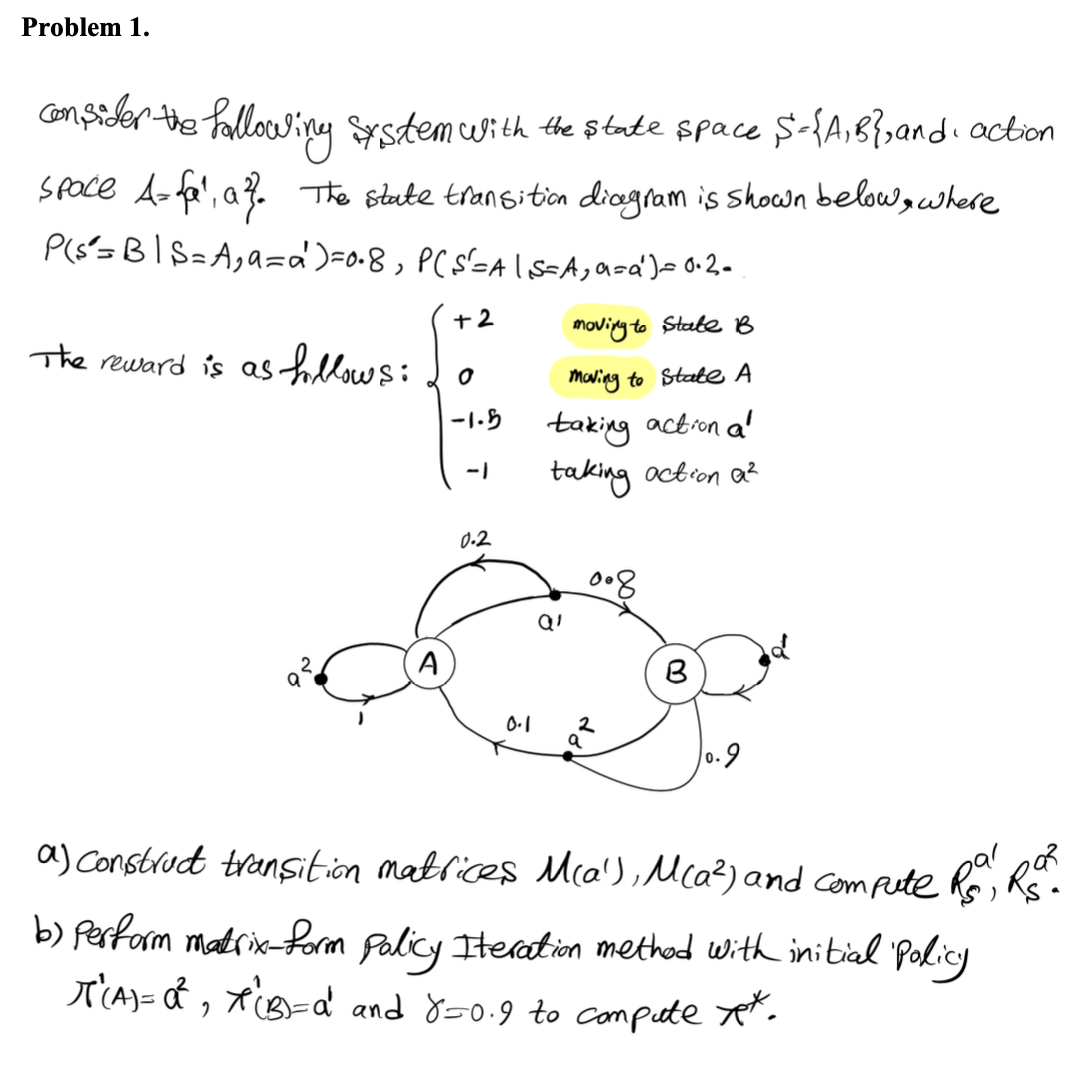 Problem 1.
Consider the following system with the state space S={A,B}, and action
space A={a¹, a²}. The state transition diagram is shown below, where
P(s'=B | S=A, a=a¹)=0.8, P(s'=A | S=A, a=a¹)=0.2.
The reward is as follows:
+2 moving to state B
0 moving to state A
-1.5 taking action a¹
-1 taking action a²
0.2
0.8
a¹
a²
A
B
a¹
1
0.1
a²
0.9
a) construct transition matrices M(a¹), M(a²) and compute Rₛᵃ¹, Rₛᵃ².
b) Perform matrix-form Policy Iteration method with initial policy
π¹(A)=a², π¹(B)=a¹ and γ=0.9 to compute π*.